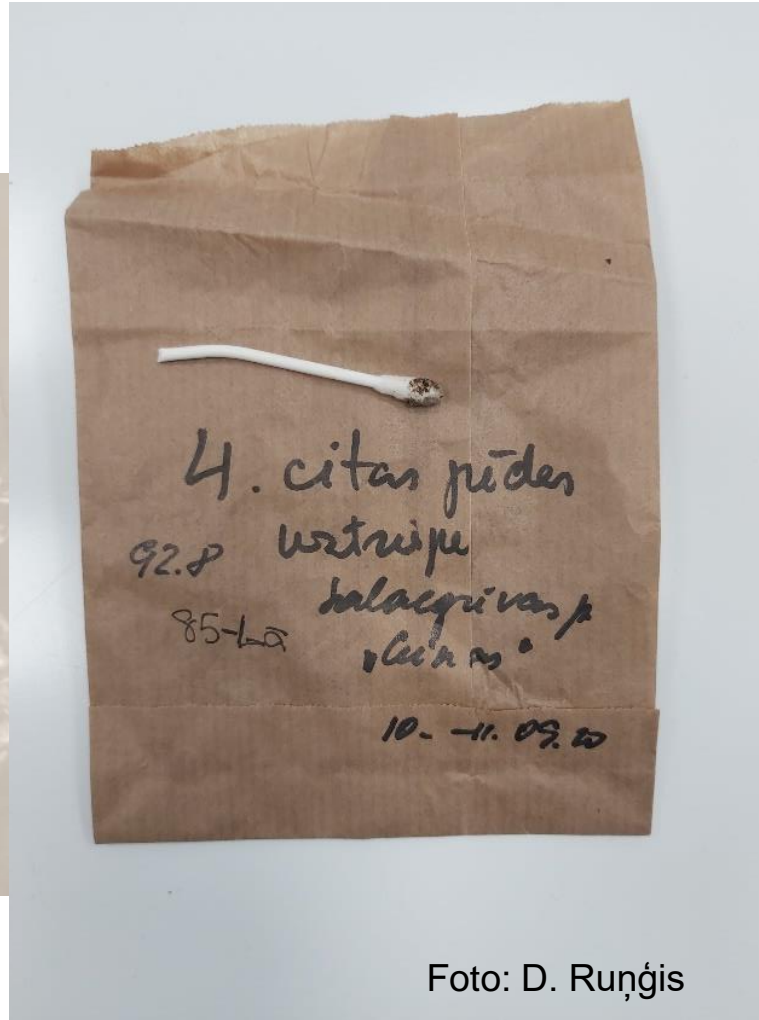 4. citas pēdes
92.8 uztriepe
Salacgrīvas p
85-Lā
10.-11.09.20
Foto: D. Ruņģis